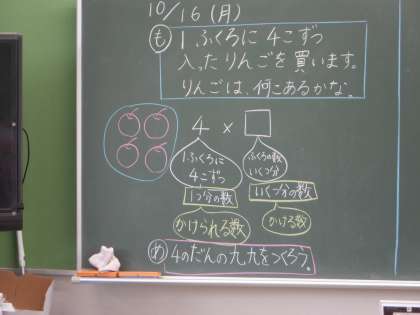 10/16(月)
も 1ふくろに4こずつ
入ったりんごを買います。
りんごは、何こあるかな。
4×□
1ふくろに
4こずつ
ふくろの数
いくつ分
1つ分の数
いくつ分の数
かけられる数
かける数
め 4のだんの九九をつくろう。